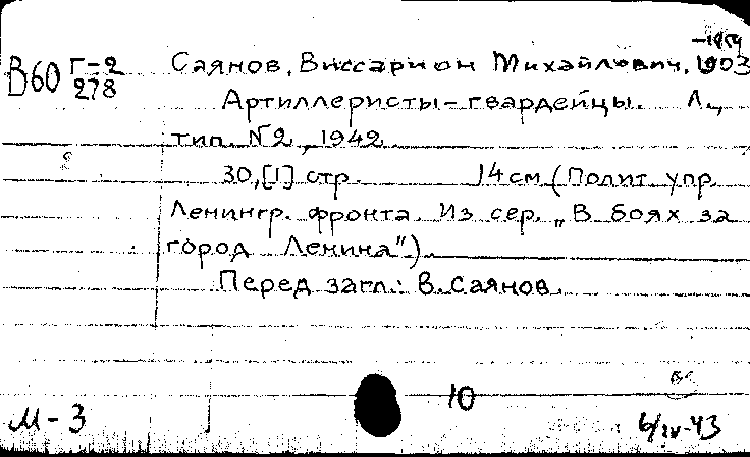 -1959
В60 Г-2 Саянов, Виссарион Михайлович, 1903
278
Артиллеристы-гвардейцы. Л.,
тип. №2, 1942.
30,[1] стр. 14 см (Полит. упр.
Ленингр. фронта. Из сер. „В боях за
город Ленина").
Перед загл.: В. Саянов.
10
М-3 6/IV-43